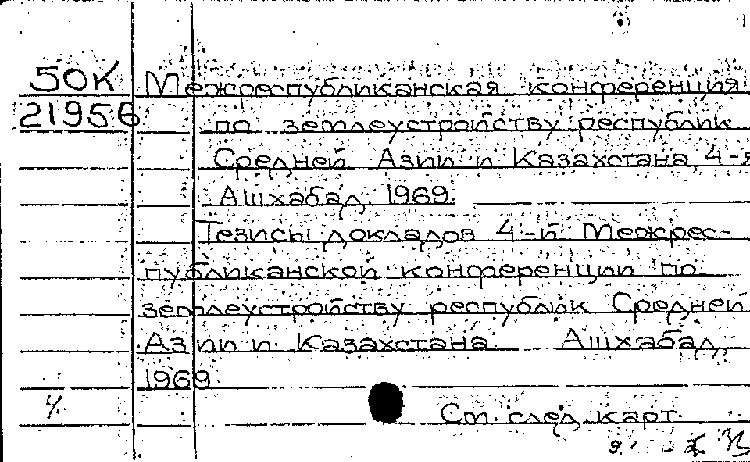 50К Межреспубликанская конференция
21956 по землеустройству республик
Средней Азии и Казахстана, 4-я
Ашхабад, 1969.
Тезисы докладов 4-й Межрес-
публиканской конференции по
землеустройству республик Средней
Азии и Казахстана. Ашхабад,
1969.
См. след. карт.